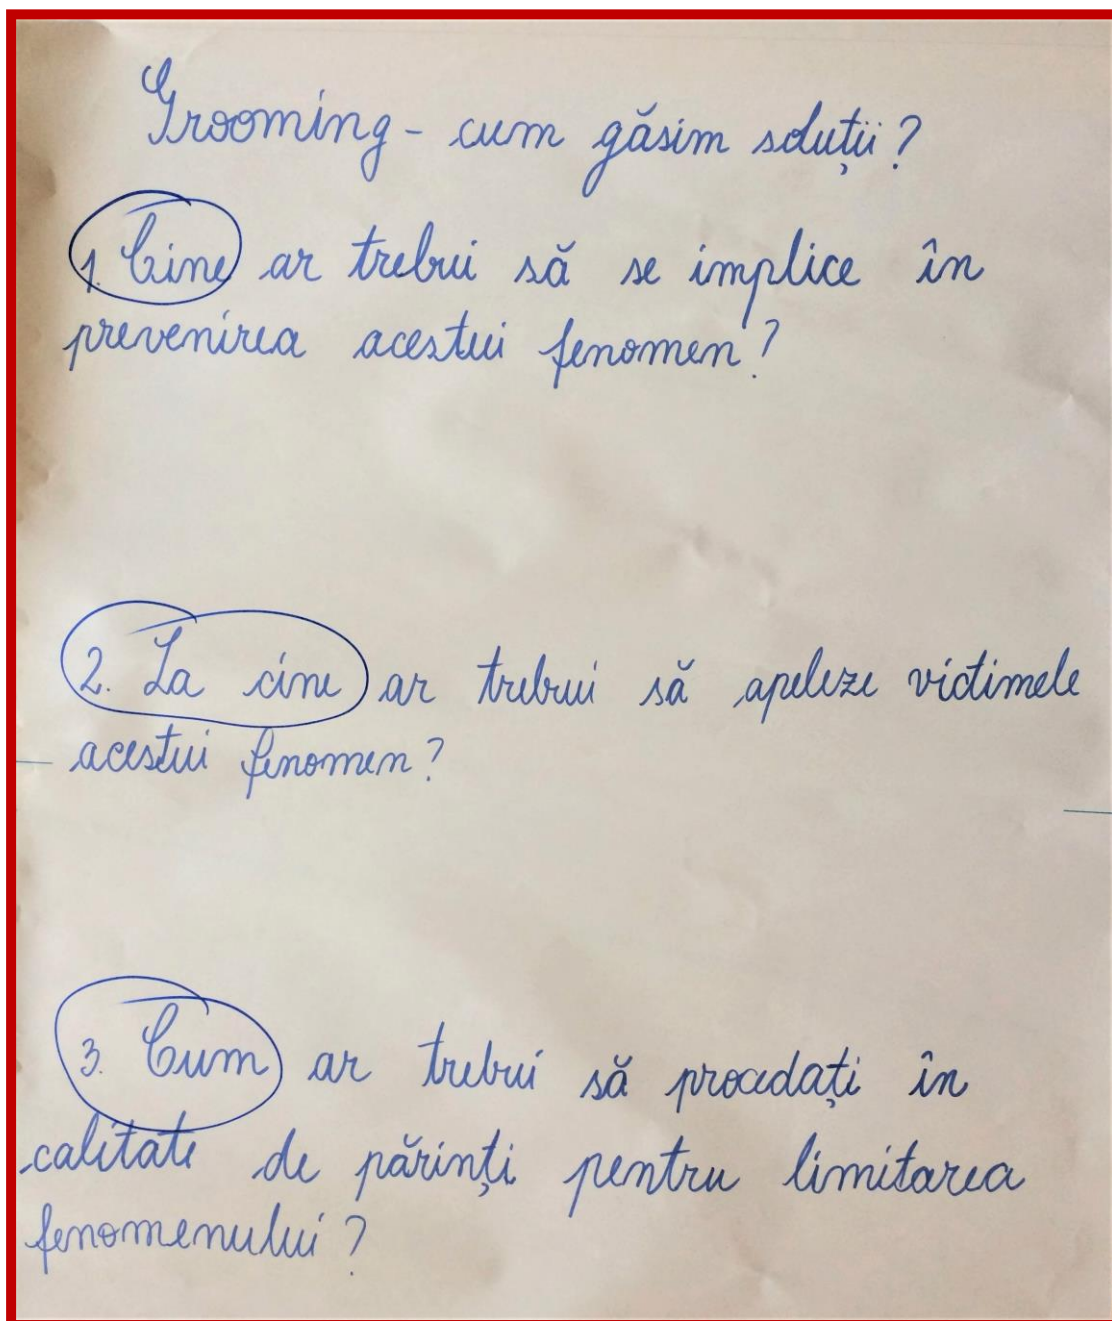 Grooming - cum găsim soluții?
1. Cine ar trebui să se implice în
prevenirea acestui fenomen?
2. La cine ar trebui să apeleze victimele
acestui fenomen?
3. Cum ar trebui să procedați în
calitate de părinți pentru limitarea
fenomenului?